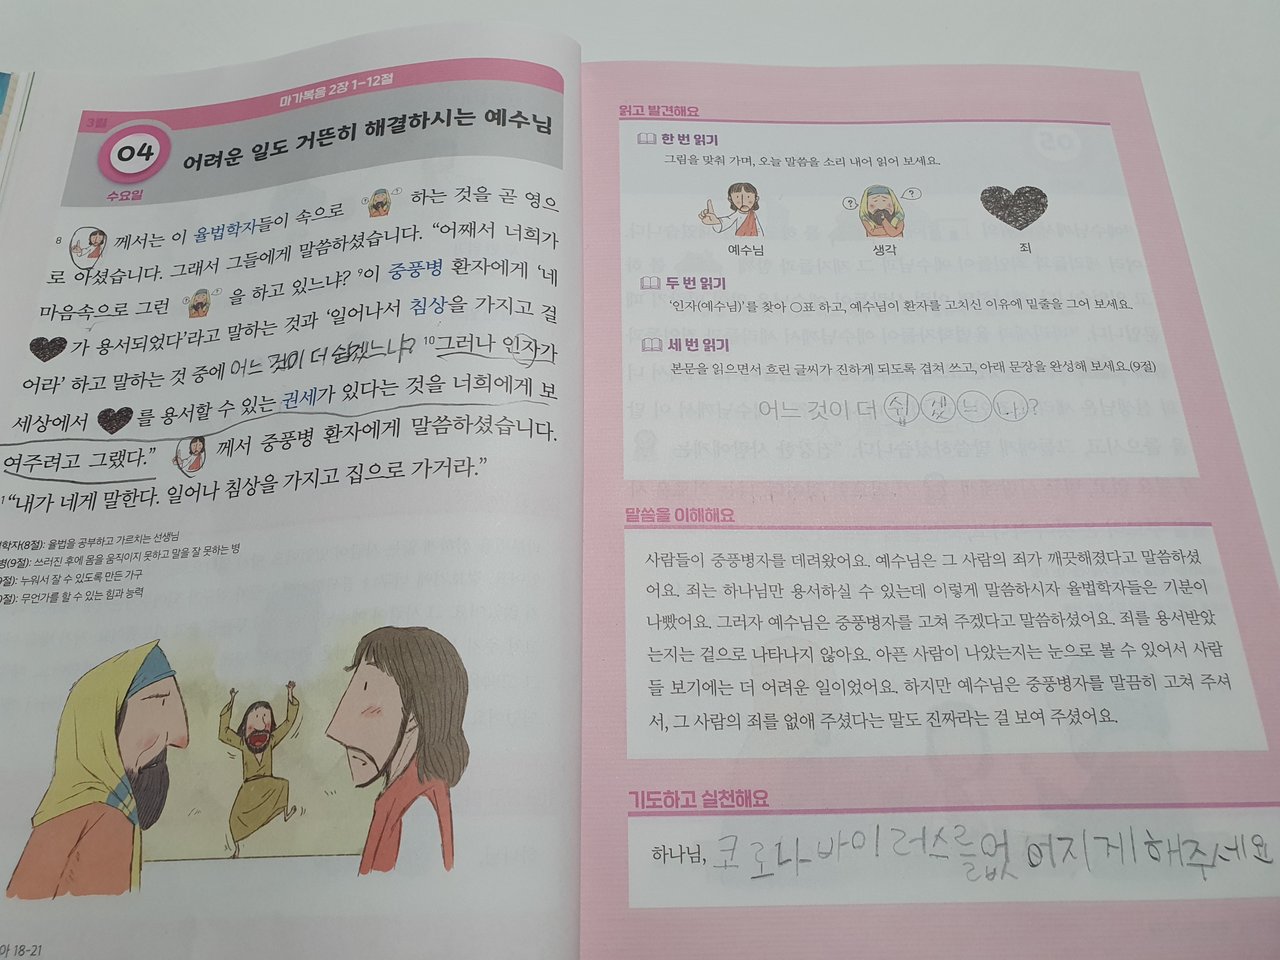 마가복음 2장 1-12절
3월
04
수요일
어려운 일도 거뜬히 해결하시는 예수님
8 께서는 이 율법학자들이 속으로 하는 것을 곧 영으
로 아셨습니다. 그래서 그들에게 말씀하셨습니다. “어째서 너희가
마음속으로 그런 을 하고 있느냐? 9이 중풍병 환자에게 ‘네
가 용서되었다’라고 말하는 것과 ‘일어나서 침상을 가지고 걸
어라’ 하고 말하는 것 중에 어느 것이 더 쉽겠느냐? 10그러나 인자가
세상에서 를 용서할 수 있는 권세가 있다는 것을 너희에게 보
여주려고 그랬다.” 께서 중풍병 환자에게 말씀하셨습니다.
1“내가 네게 말한다. 일어나 침상을 가지고 집으로 가거라.”
학자(8절): 율법을 공부하고 가르치는 선생님
병(9절): 쓰러진 후에 몸을 움직이지 못하고 말을 잘 못하는 병
절): 누워서 잘 수 있도록 만든 가구
절): 무언가를 할 수 있는 힘과 능력
18-21
읽고 발견해요
한 번 읽기
그림을 맞춰 가며, 오늘 말씀을 소리 내어 읽어 보세요.
예수님 생각 죄
두 번 읽기
‘인자(예수님)’를 찾아 ○표 하고, 예수님이 환자를 고치신 이유에 밑줄을 그어 보세요.
세 번 읽기
본문을 읽으면서 흐린 글씨가 진하게 되도록 겹쳐 쓰고, 아래 문장을 완성해 보세요.(9절)
어느 것이 더 쉽겠느냐?
말씀을 이해해요
사람들이 중풍병자를 데려왔어요. 예수님은 그 사람의 죄가 깨끗해졌다고 말씀하셨
어요. 죄는 하나님만 용서하실 수 있는데 이렇게 말씀하시자 율법학자들은 기분이
나빴어요. 그러자 예수님은 중풍병자를 고쳐 주겠다고 말씀하셨어요. 죄를 용서받았
는지는 겉으로 나타나지 않아요. 아픈 사람이 나았는지는 눈으로 볼 수 있어서 사람
들 보기에는 더 어려운 일이었어요. 하지만 예수님은 중풍병자를 말끔히 고쳐 주셔
서, 그 사람의 죄를 없애 주셨다는 말도 진짜라는 걸 보여 주셨어요.
기도하고 실천해요
하나님, 코로나바이러스를없어지게해주세요